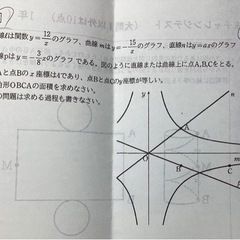 線ℓは関数y=12/xのグラフ、曲線mはy=-15/xのグラフ、直線nはy=axのグラフ、
線pはy=-3/8xのグラフである。図のように直線または曲線上に点A,B,Cをとる。
Aと点Bのx座標は4であり、点Bと点Cのy座標が等しい。
角形OBCAの面積を求めなさい。
の問題は求める過程も書きなさい。
y
n
A
O
B
C
M